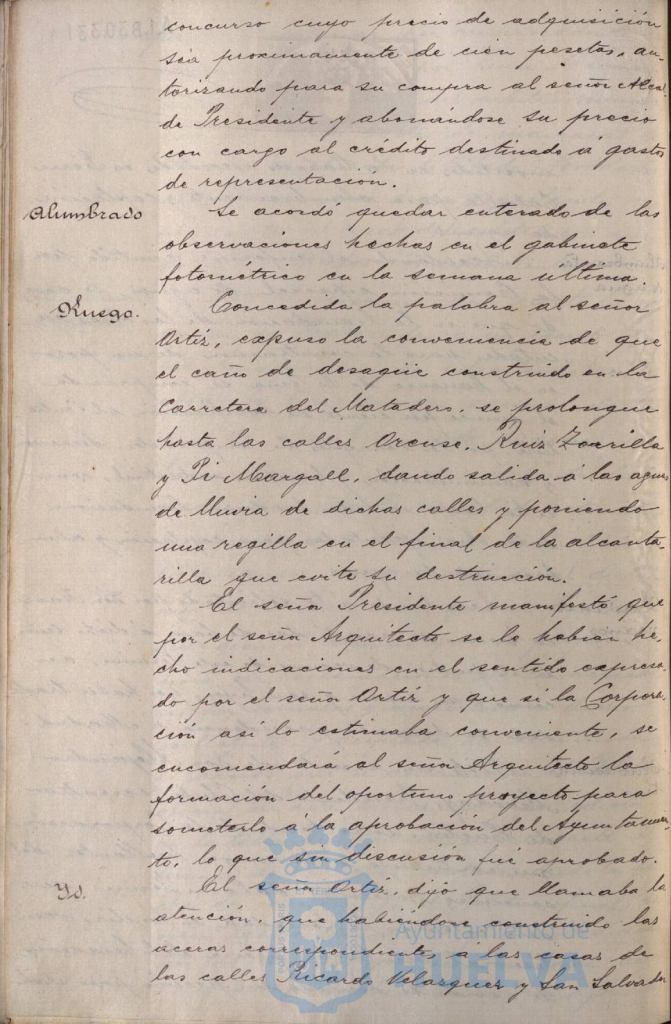 concurso cuyo precio de adquisición
sea proximamente de cien pesetas, au-
torizando para su compra al señor Alcal-
de Presidente y abonándose su precio
con cargo al crédito destinado á gastos
de representación.
Alumbrado
Se acordó quedar enterado de las
observaciones hechas en el gabinete
fotométrico en la semana última.
Ruego.
Concedida la palabra al señor
Ortíz, expuso la conveniencia de que
el caño de desagüe construido en la
Carretera del Matadero, se prolongue
hasta las calles Orense, Ruiz Zorrilla
y Pi Margall, dando salida á las aguas
de lluvia de dichas calles y poniendo
una regilla en el final de la alcanta-
rilla que evite su destrucción.
El señor Presidente manifestó que
por el señor Arquitecto se le habian he-
cho indicaciones en el sentido expresa-
do por el señor Ortíz y que si la Corpora-
ción así lo estimaba conveniente, se
encomendará al señor Arquitecto la
formación del oportuno proyecto para
someterlo á la aprobación del Ayuntamien-
to, lo que sin discusión fué aprobado.
Yd.
El señor Ortíz, dijo que llamaba la
atención, que habiéndose construido las
aceras correspondientes á las casas de
las calles Ricardo Velazquez y San Salvador
Ayuntamiento de
HUELVA